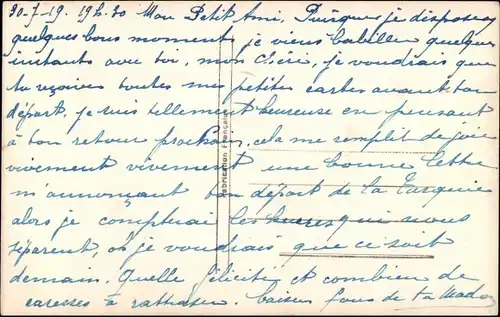 30-7-19. 19h.30 Mon Petit Ami, Puisque je dispose
quelques bons moments je viens babiller quelques
instants avec toi, mon Chéri, je voudrais que
tu reçoives toutes mes petites cartes avant ton
départ. je suis tellement heureuse en pensant
à ton retour prochain, cela me remplit de joie
vivement vivement une bonne lettre
m'annonçant ton départ de la Turquie
alors je compterai les heures qui nous
séparent, oh je voudrais que ce soit
demain. Quelle félicité et combien de
caresses à rattraper. baisers fous de ta Madon
Fabrication Française